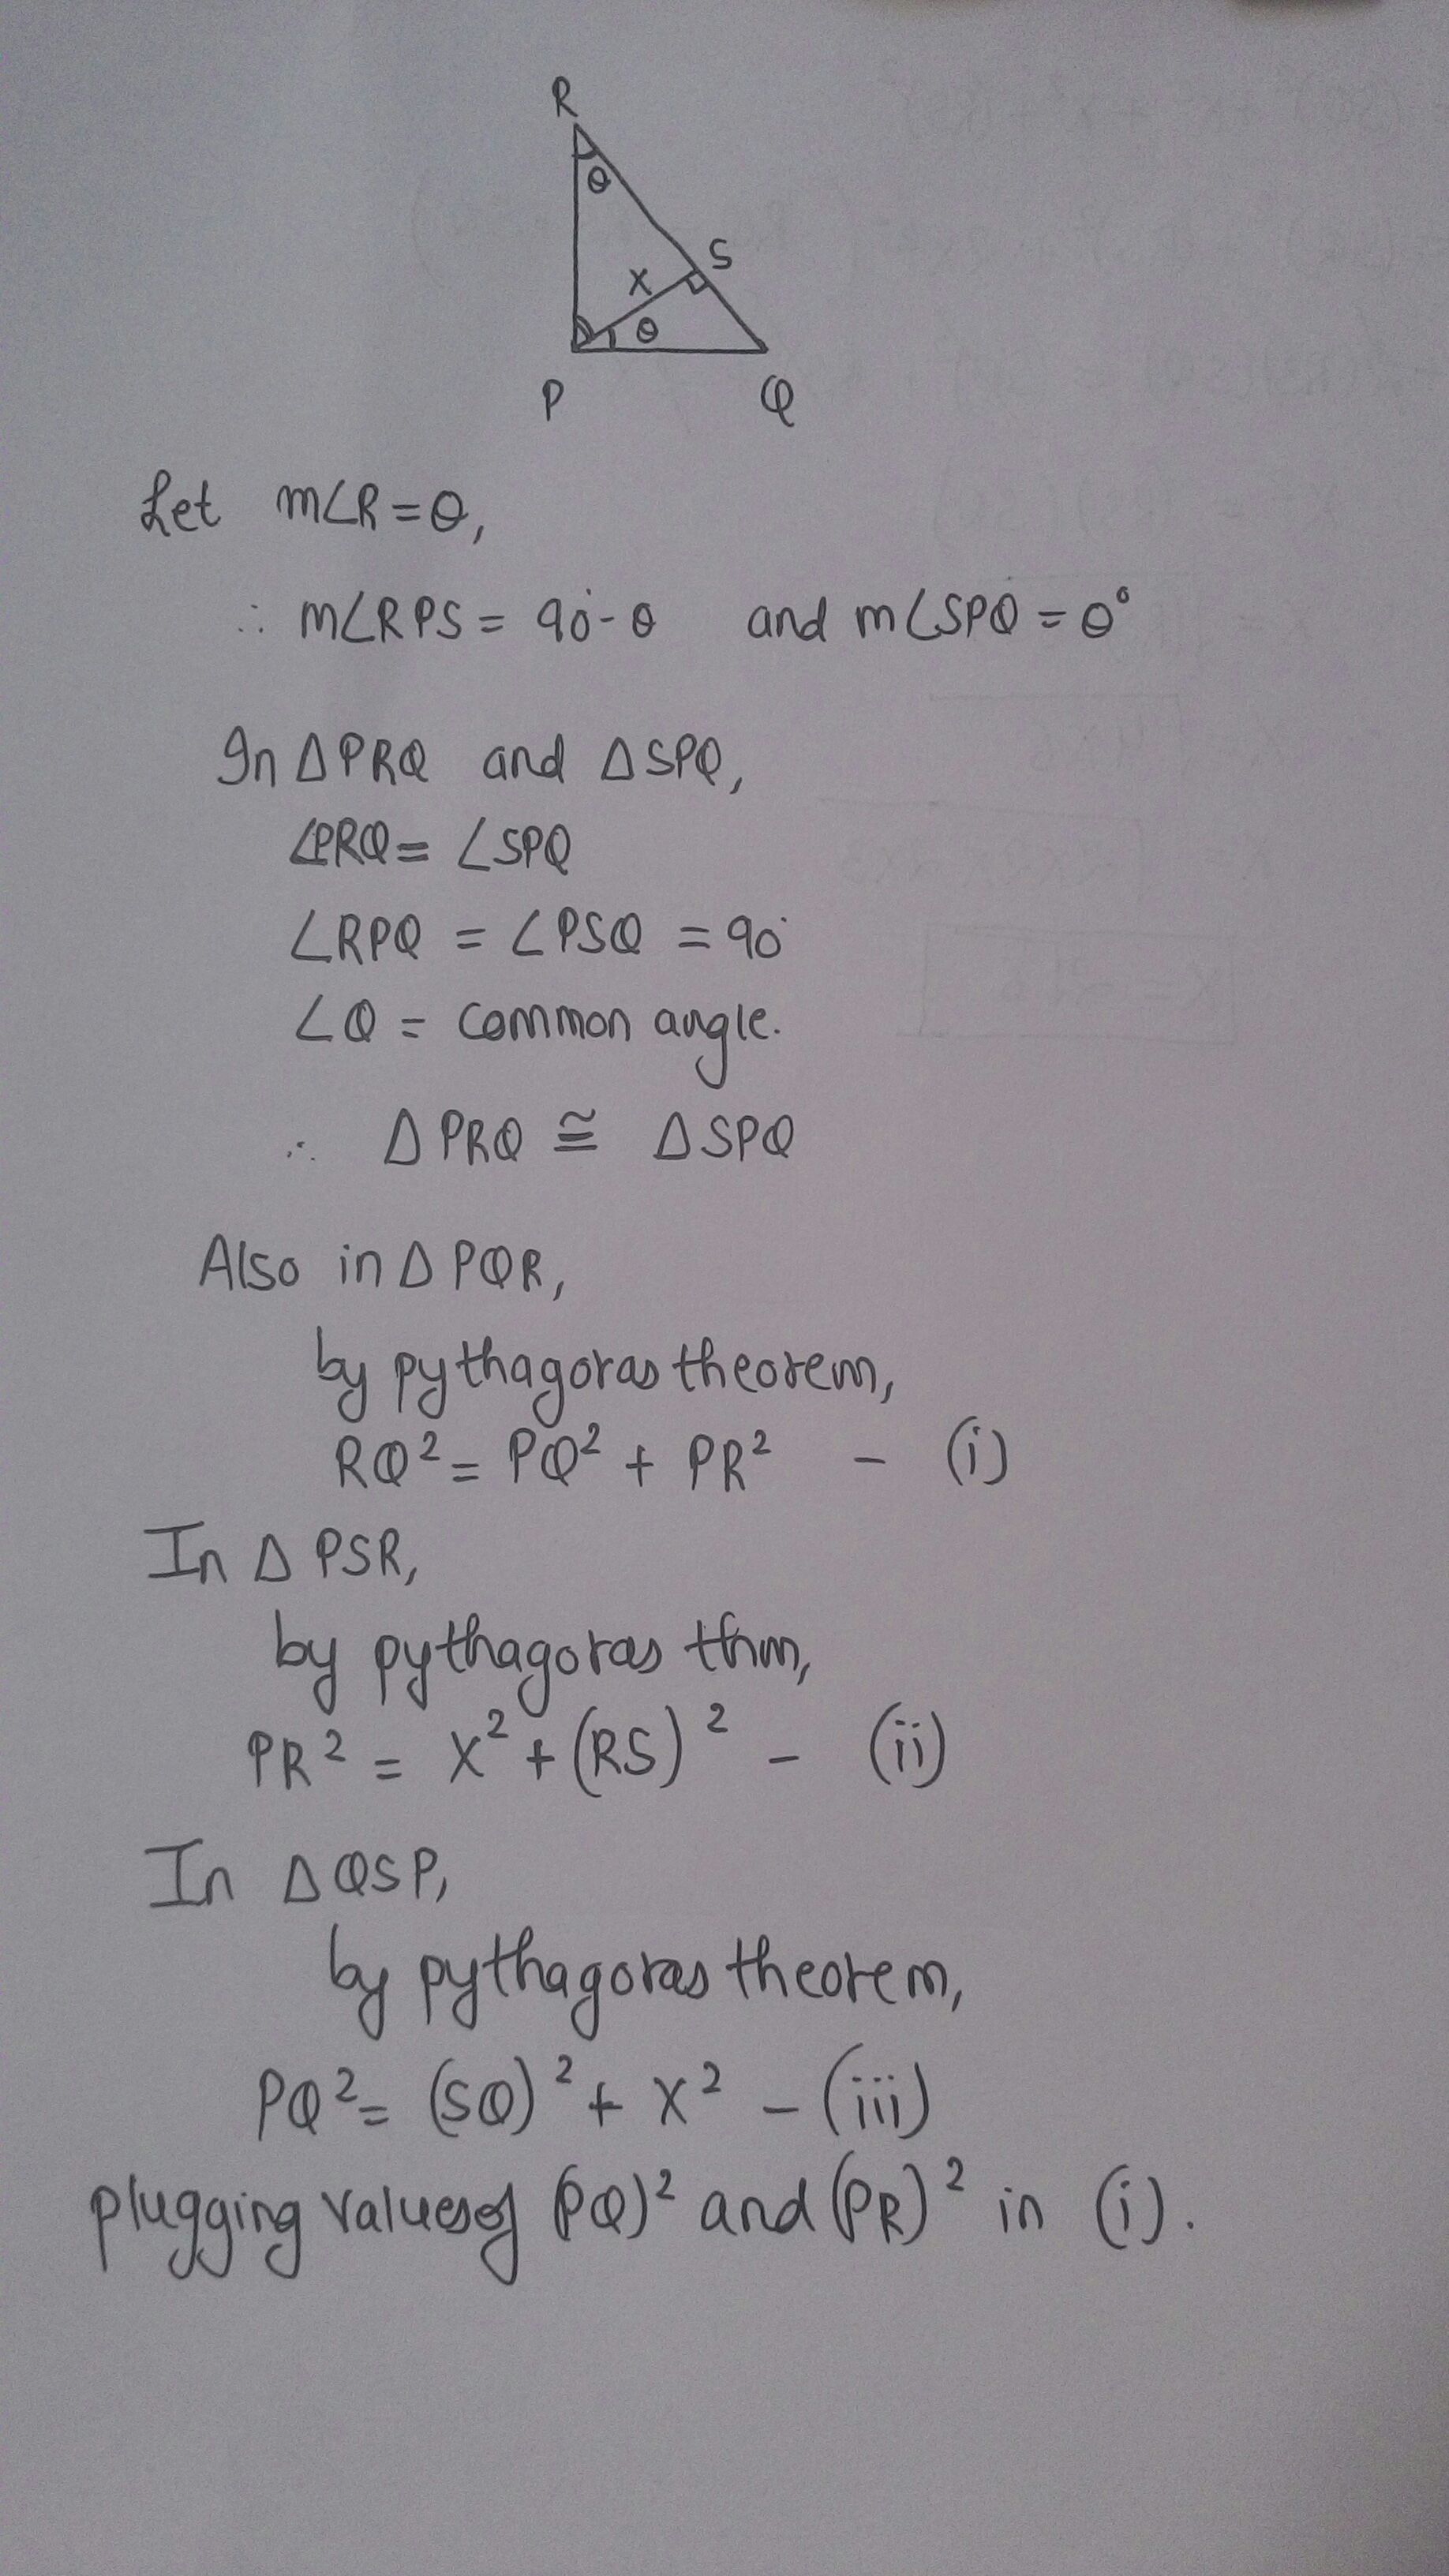 R
θ
S
x
θ
P Q
Let m∠R=θ,
∴ m∠RPS = 90°-θ and m∠SPQ = θ°
In △PRQ and △SPQ,
∠PRQ= ∠SPQ
∠RPQ = ∠PSQ = 90°
∠Q = common angle.
∴ △PRQ ≅ △SPQ
Also in △PQR,
by pythagoras theorem,
RQ² = PQ² + PR² - (i)
In △ PSR,
by pythagoras thm,
PR² = x² + (RS)² - (ii)
In △QSP,
by pythagoras theorem,
PQ² = (SQ)² + x² - (iii)
plugging values of (PQ)² and (PR)² in (i).